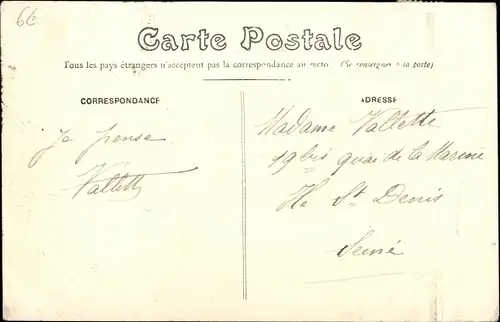 6€
Carte Postale
Tous les pays étrangers n'acceptent pas la correspondance au recto. (Se renseigner à la poste)
CORRESPONDANCE
Je pense
Vallette
ADRESSE
Madame Vallette
19 bis quai de la Marine
Ile St Denis
Seine